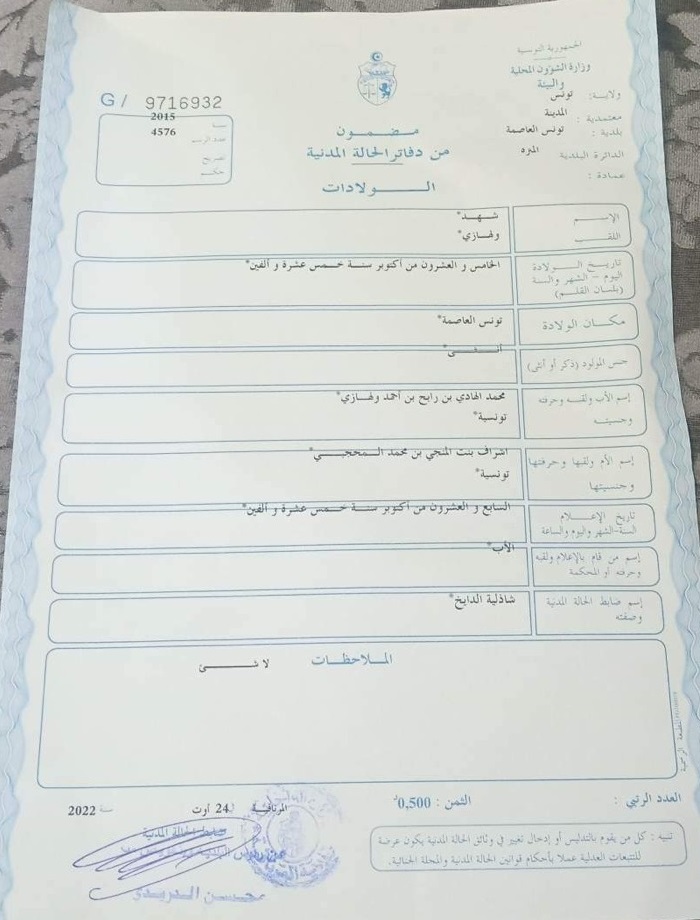 الجمهورية التونسية
وزارة الشؤون المحلية
والبيئة
ولاية: تونس
معتمدية : المدينة
بلدية : تونس العاصمة
الدائرة البلدية
عمادة :
G/ 9716932
سنة 2015
عدد الرسم 4576
تصريح
حكم
مضمون
من دفاتر الحالة المدنية
الولادات
الاسم شهد*
اللقب ولهازي*
تاريخ الولادة الخامس و العشرون من أكتوبر سنة خمس عشرة و ألفين*
اليوم - الشهر والسنة
(بلسان القلم)
مكان الولادة تونس العاصمة*
جنس المولود (ذكر أو أنثى) أنثى*
إسم الأب ولقبه وحرفته محمد الهادي بن رابح بن أحمد ولهازي*
وجنسيته تونسية*
إسم الأم ولقبها وحرفتها اشراف بنت المنجي بن محمد المحجبي*
وجنسيتها تونسية*
تاريخ الإعلام السابع و العشرون من أكتوبر سنة خمس عشرة و ألفين*
السنة-الشهر واليوم والساعة
إسم من قام بالإعلام ولقبه الأب*
وحرفته أو المحكمة
إسم ضابط الحالة المدنية شاذلية الدايخ*
وصفته
الملاحظات
لا شئ
العدد الرتبي :
الثمن : 0,500د
24 أوت سنة 2022
ضابط الحالة المدنية
محسن الدريدي
تنبيه : كل من يقوم بالتدليس أو إدخال تغيير في وثائق الحالة المدنية يكون عرضة
للتتبعات العدلية عملا بأحكام قوانين الحالة المدنية والمجلة الجنائية.